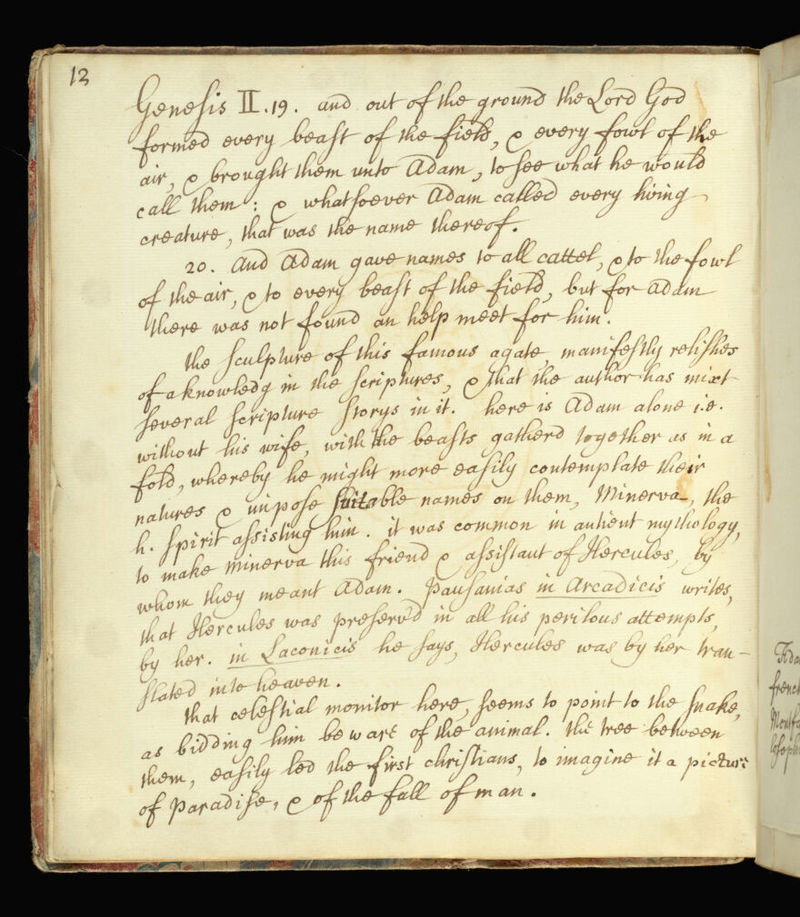 13
Genesis II.19. and out of the ground the Lord God
formed every beast of the field, & every fowl of the
air, & brought them unto Adam, to see what he would
call them: & whatsoever Adam called every living
creature, that was the name thereof.
20. And Adam gave names to all cattel, & to the fowl
of the air, & to every beast of the field, but for Adam
there was not found an help meet for him.
the sculpture of this famous agate, manifestly relishes
of a knowledg in the scriptures, & that the author has mixt
several scripture storys in it. here is Adam alone i.e.
without his wife, with the beasts gatherd together as in a
fold, whereby he might more easily contemplate their
natures & impose suitable names on them, Minerva, the
h. spirit assisting him. it was common in antient mythology,
to make minerva this friend & assistant of Hercules, by
whom they meant Adam. Pausanias in Arcadicis writes,
that Hercules was preserv'd in all his perilous attempts,
by her. in Laconicis he says, Hercules was by her tran-
slated into heaven.
that celestial monitor here, seems to point to the snake,
as bidding him beware of the animal. the tree between
them, easily led the first christians, to imagine it a picture
of Paradise, & of the fall of man.